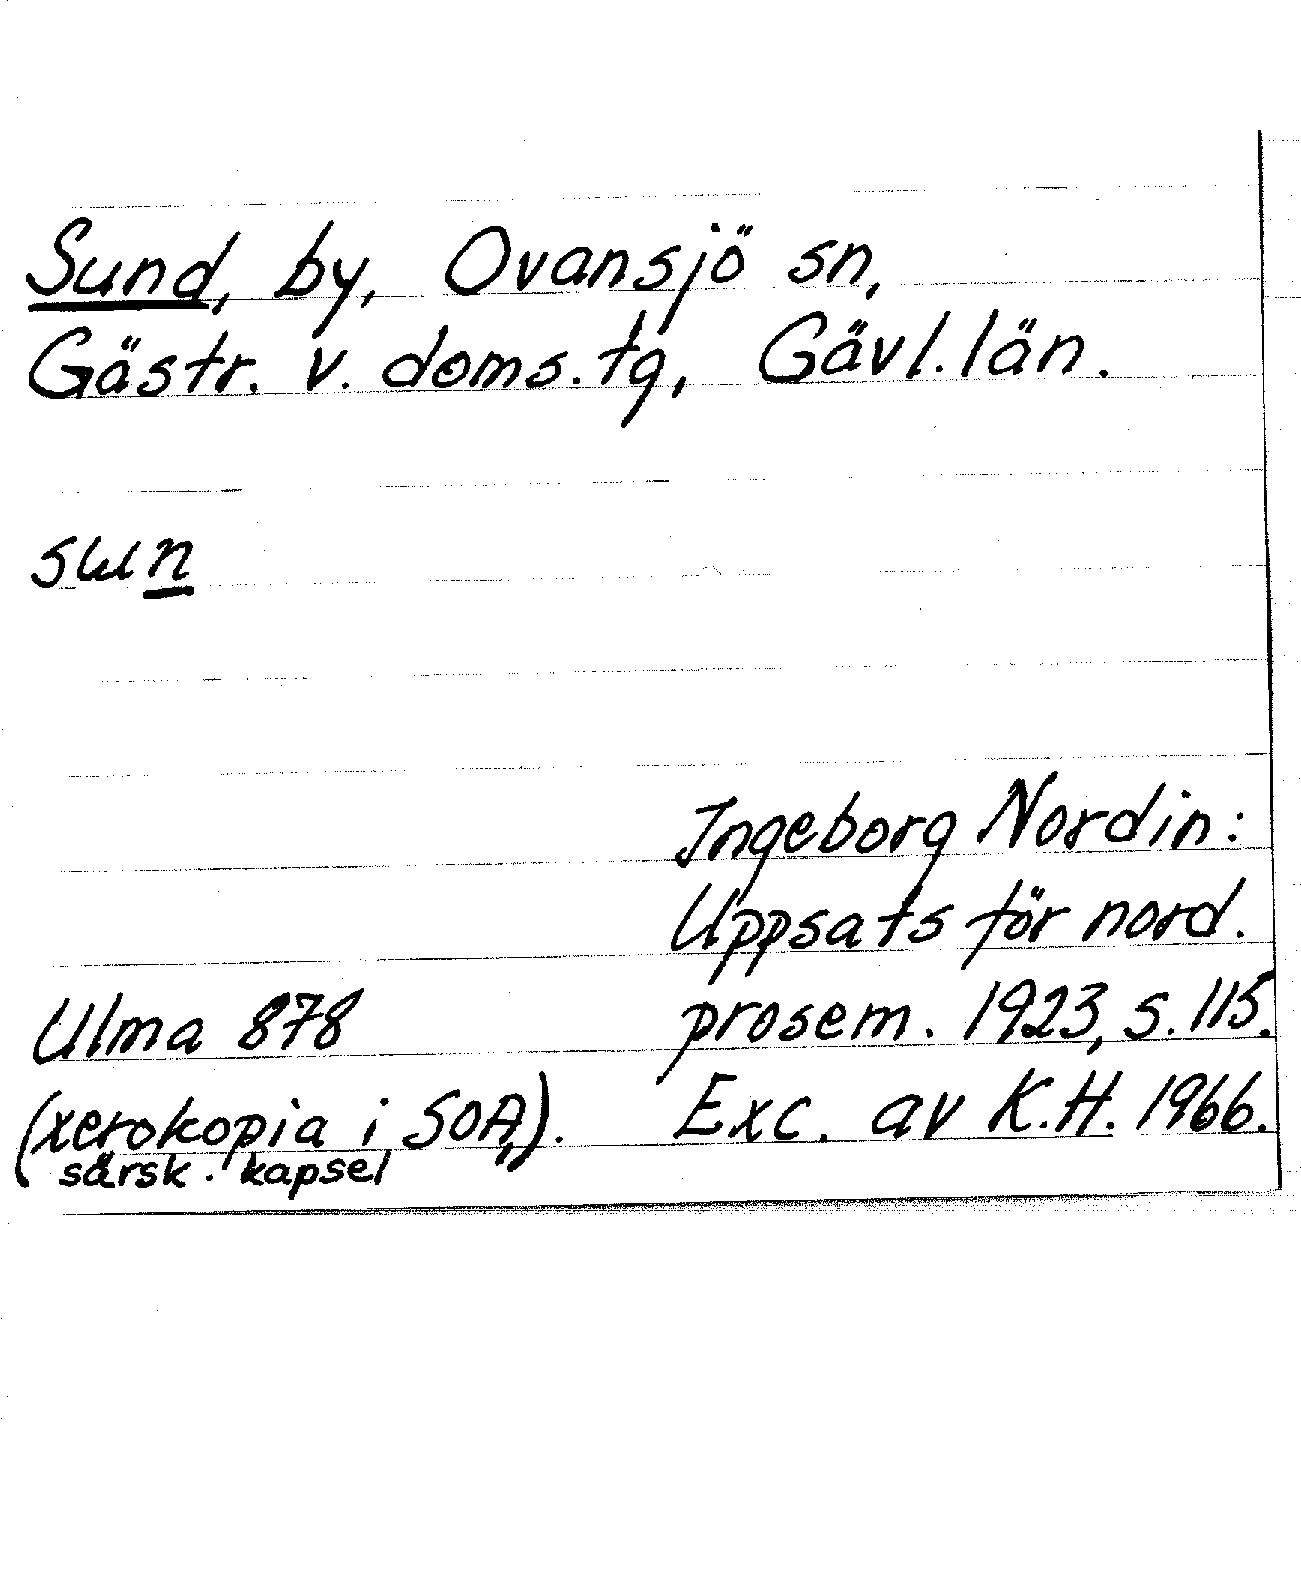 Sund, by, Ovansjö sn,
Gästr. v. doms. tg, Gävl. län.
sɯn
Ingeborg Nordin:
Uppsats för nord.
prosem. 1923, s. 115.
Exc. av K.H. 1966.
Ulma 878
(xerokopia i SOA,).
särsk. kapsel